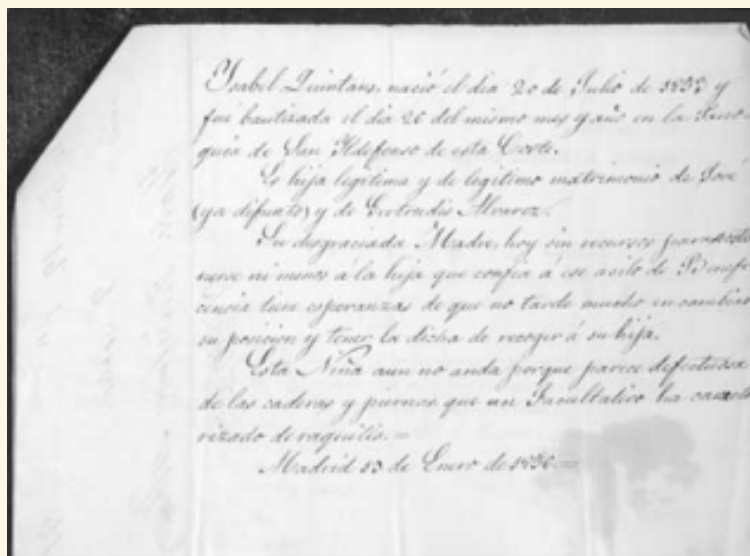 Ysabel Quintans, nació el dia 20 de Julio de 1853 y
fué bautizada el dia 26 del mismo mes y año en la Parro-
quia de San Yldefonso de esta Corte.
Es hija legitima y de legitimo matrimonio de José
(ya difunto) y de Gertrudis Alvarez.
Su desgraciada Madre, hoy sin recursos para soste
nerse ni menos á la hija que confia á ese asilo de Benefi
cencia tiene esperanzas de que no tarde mucho en cambiar
su posicion y tener la dicha de recoger á su hija.
Esta Niña aun no anda porque parece defectuosa
de las caderas y piernas que un Facultativo ha caracte
rizado de raquitis.=
Madrid 13 de Enero de